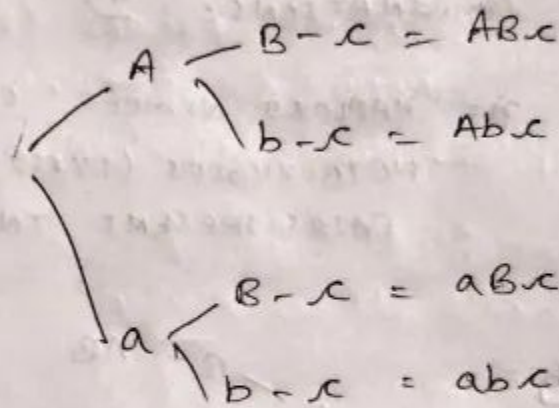 A B - c = ABc
b - c = Abc
a B - c = aBc
b - c = abc